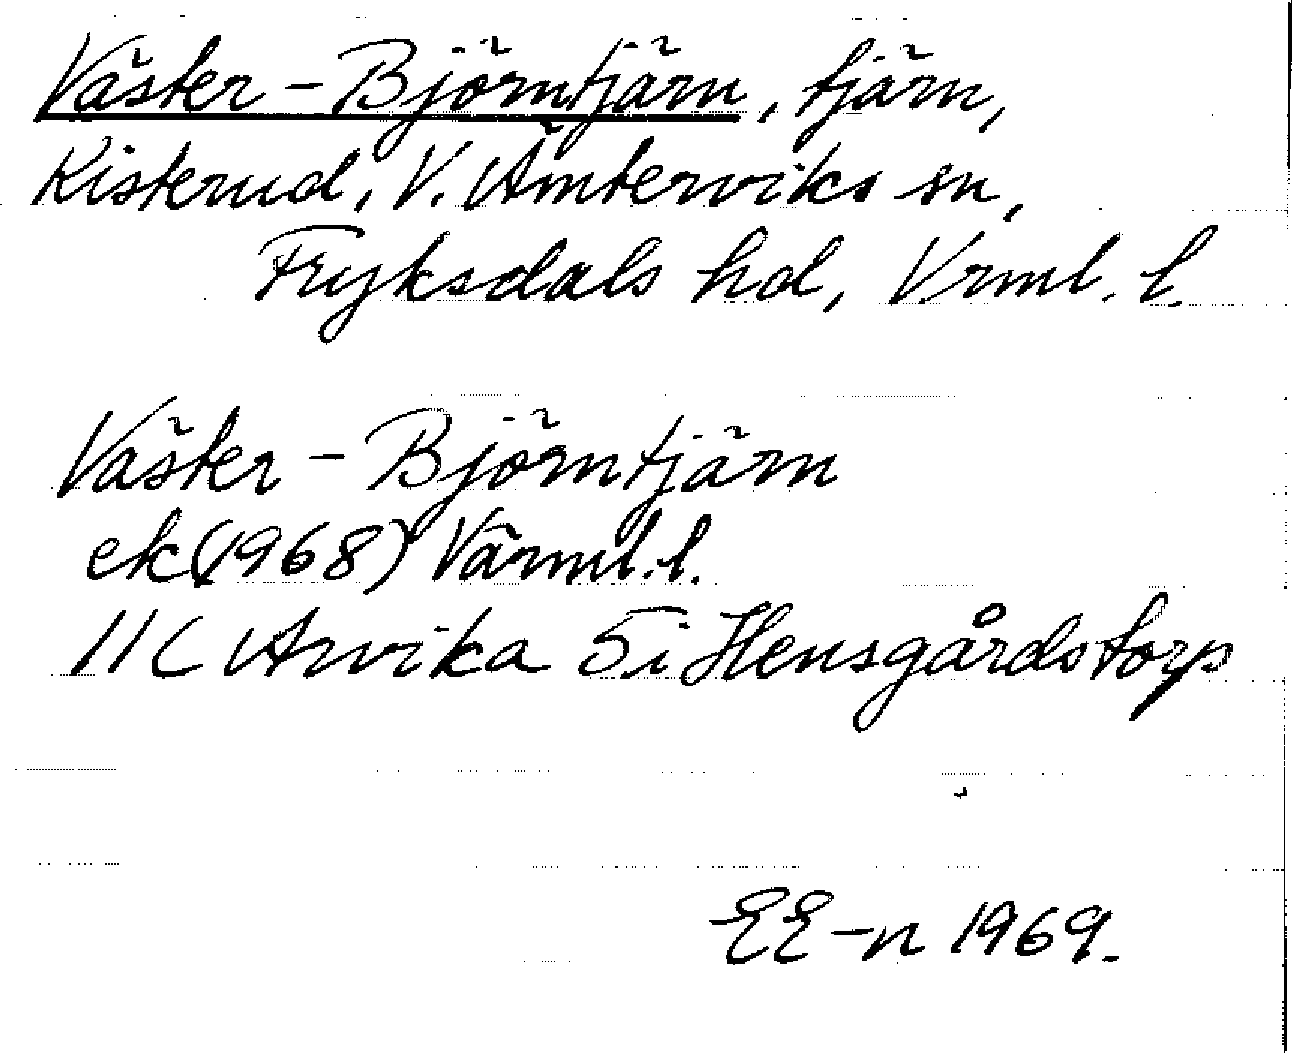 Väster-Björntjärn, tjärn,
Kisterud, V. Ämterviks sn,
Fryksdals hd, Vrml. l.
Väster-Björntjärn
ek (1968) Värml. l.
11C Arvika 5i Hensgårdstorp
EE-n 1969.